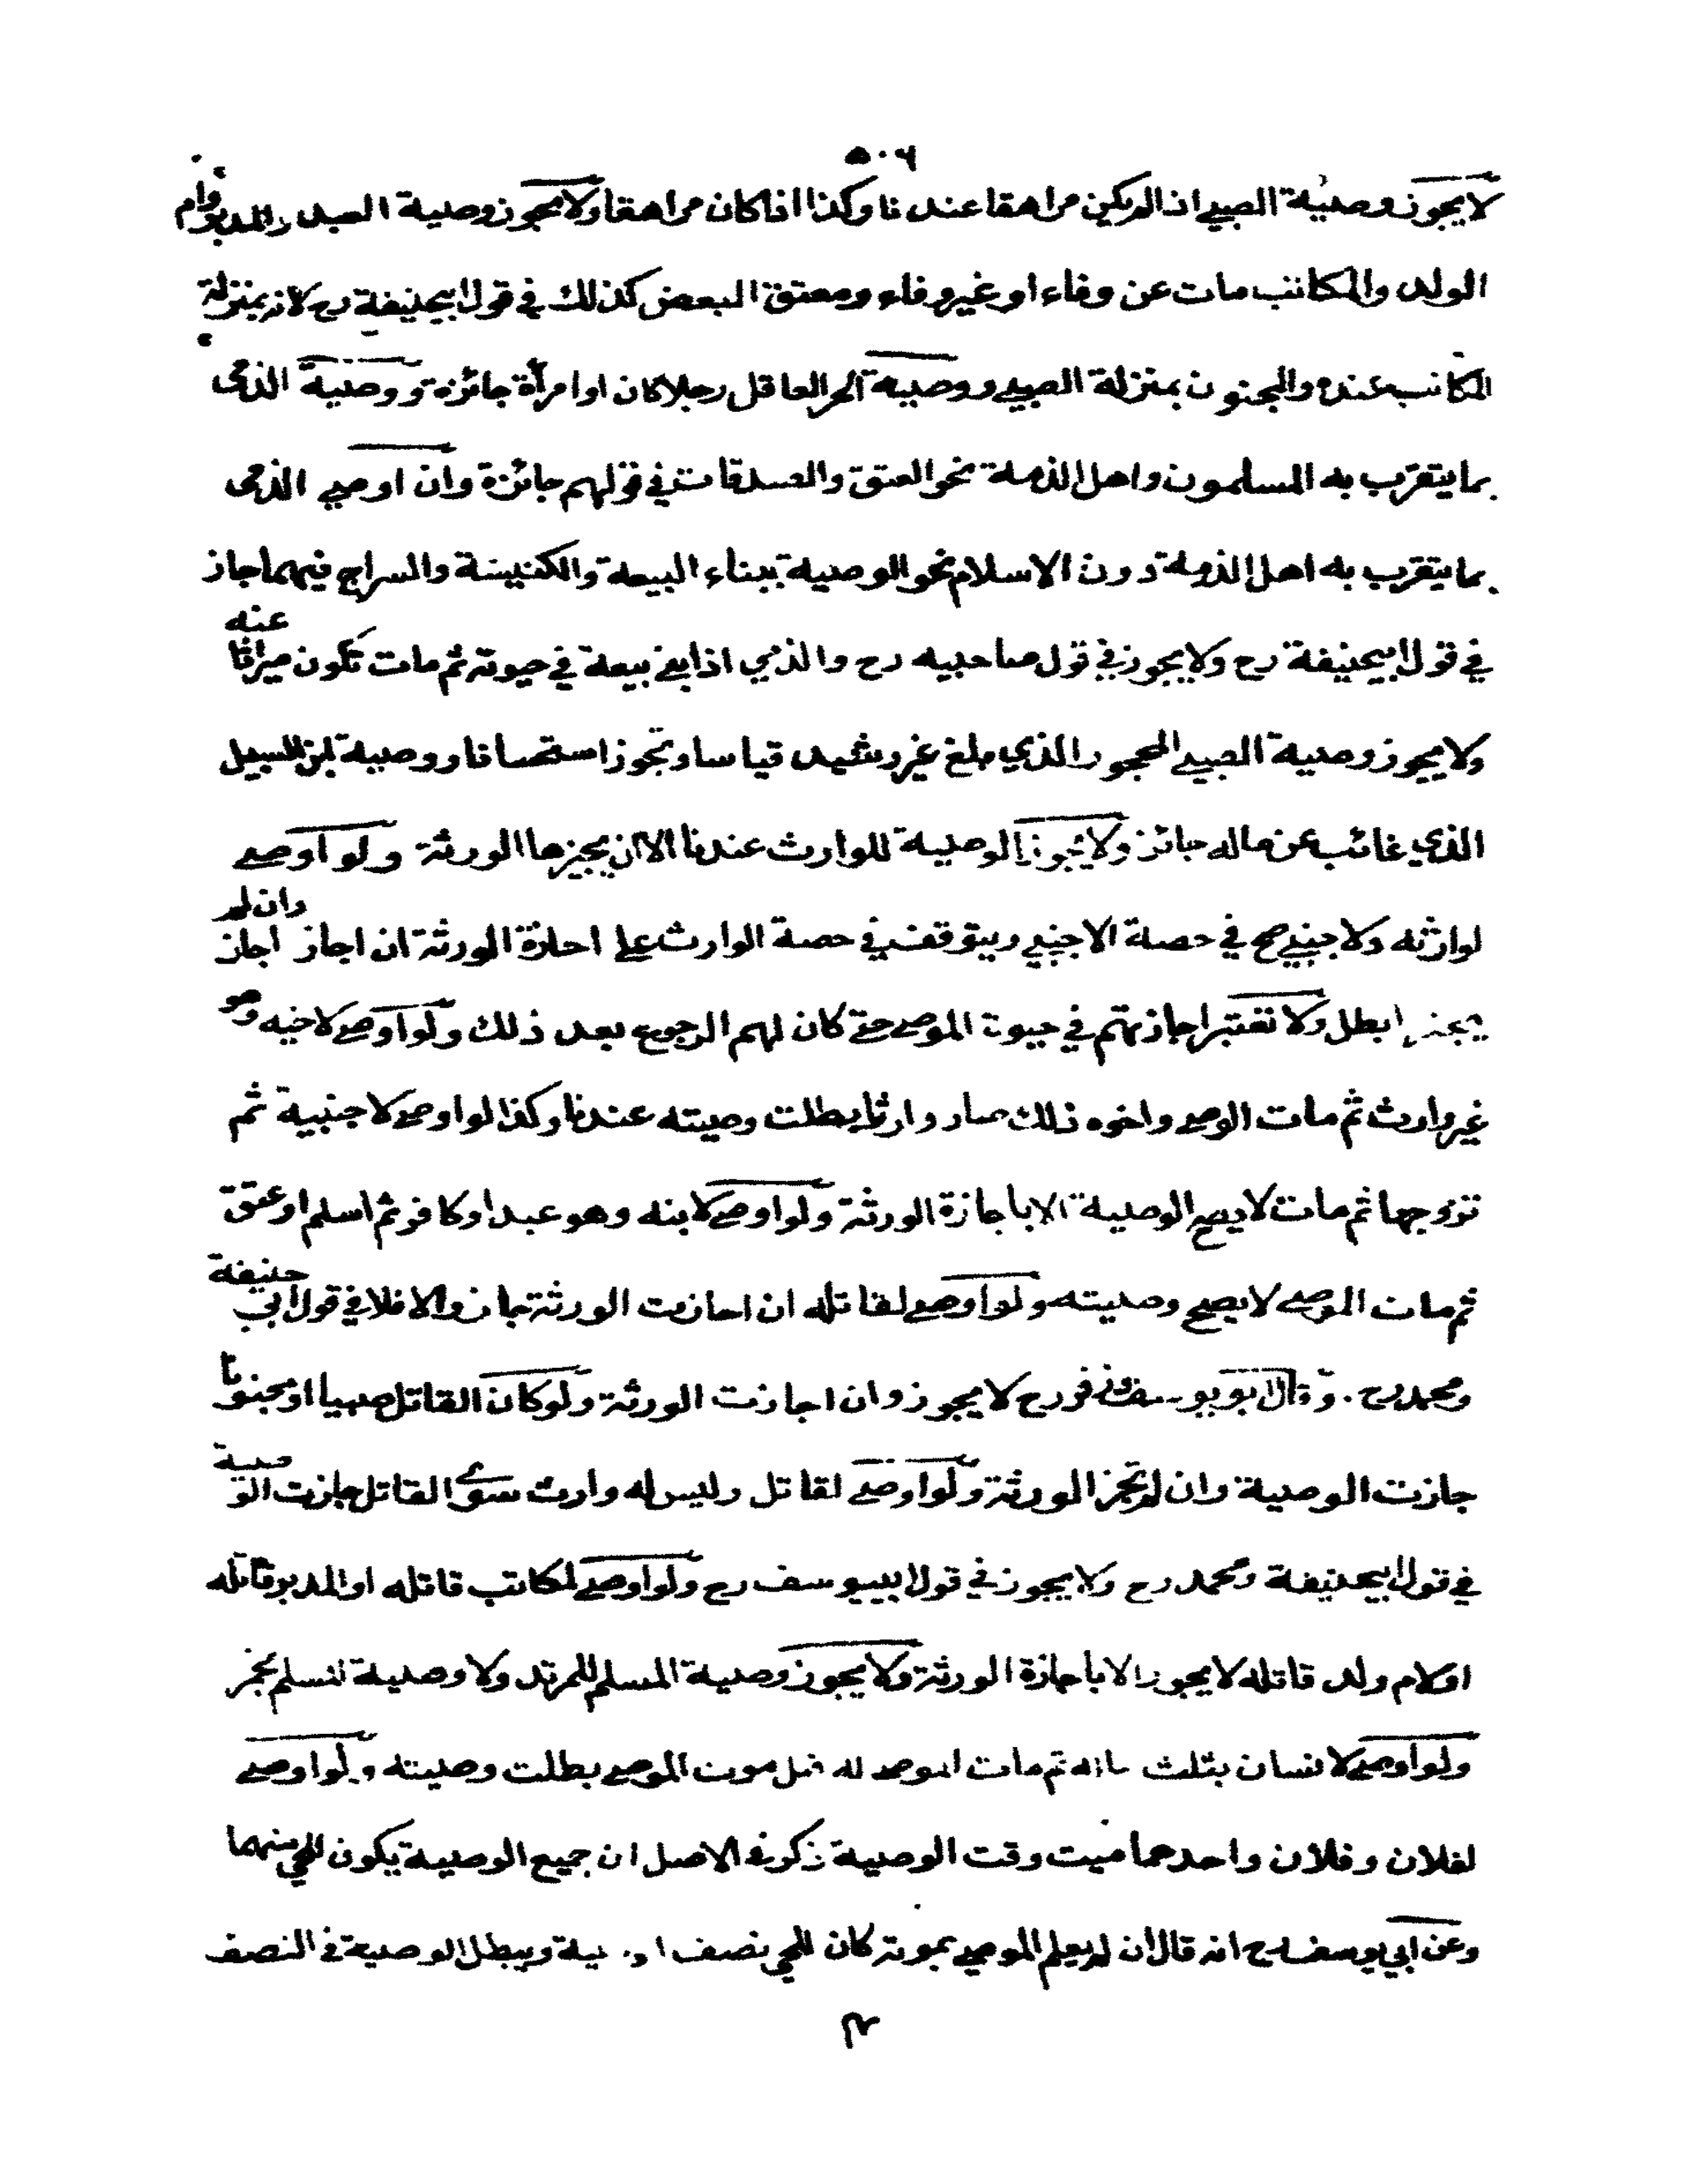 ٥٠٦
لا يجوز وصية الصبي اذا لم يكن مراهقا عندنا وكذا اذا كان مراهقا ولا يجوز وصية العبد والمدبر وام
الولد والمكاتب مات عن وفاء او غير وفاء ومعتق البعض كذلك في قول ابيحنيفة رح لانه بمنزلة
المكاتب عنده والمجنون بمنزلة الصبي ووصية الحر العاقل رجلا كان او امرأة جائزة ووصية الذمى
بما يتقرب به المسلمون واهل الذمة نحو العتق والصدقات في قولهم جائزة وان اوصي الذمى
بما يتقرب به اهل الذمة دون الاسلام نحو الوصية ببناء البيعة والكنيسة والسراج فيهما جاز
في قول ابيحنيفة رح ولا يجوز في قول صاحبيه رح والذمي اذا بنى بيعة في حيوته ثم مات تكون ميراثا عنه
ولا يجوز وصية الصبي المحجور الذي بلغ غير رشيد قياسا وتجوز استحسانا ووصية ابن السبيل
الذي غائب عن ماله جائز ولا يجوز الوصية للوارث عندنا الا ان يجيزها الورثة ولو اوصى
لوارثه ولاجنبي صح في حصة الاجنبي ويتوقف في حصة الوارث على اجازة الورثة ان اجاز اجاز وان لم
يجز ابطل ولا تعتبر اجازتهم في حيوة الموصى حتى كان لهم الرجوع بعد ذلك ولو اوصى لاخيه وهو
غير وارث ثم مات الموصى واخوه ذلك صار وارثا بطلت وصيته عندنا وكذا لو اوصى لاجنبية ثم
تزوجها ثم مات لا يصح الوصية الا باجازة الورثة ولو اوصى لابنه وهو عبد او كافر ثم اسلم او عتق
ثم مات الموصى لا يصح وصيته ولو اوصى لقاتله ان اجازت الورثة جاز والا فلا في قول ابي حنيفة
ومحمد رح. وقال ابو يوسف وزفر رح لا يجوز وان اجازت الورثة ولو كان القاتل صبيا او مجنونا
جازت الوصية وان لم تجز الورثة ولو اوصى لقاتل وليس له وارث سوى القاتل جازت الوصية
في قول ابيحنيفة ومحمد رح ولا يجوز في قول ابييوسف رح ولو اوصى لمكاتب قاتله او المدبر قاتله
او لام ولد قاتله لا يجوز الا باجازة الورثة ولا يجوز وصية المسلم للمرتد ولا وصية المسلم
ولو اوصى لانسان بثلث ماله ثم مات الموصى له قبل موت الموصى بطلت وصيته ولو اوصى
لفلان وفلان واحدهما ميت وقت الوصية ذكر في الاصل ان جميع الوصية يكون للحي منهما
وعن ابي يوسف رح انه قال ان لم يعلم الموصى بموته كان للحي نصف الوصية ويبطل الوصية في النصف